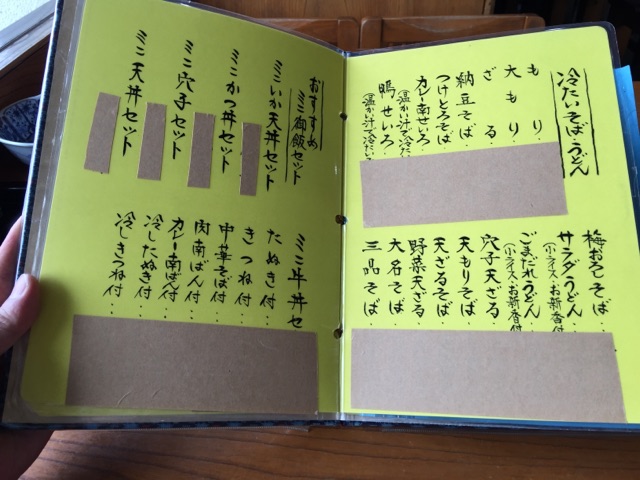 冷たいそば・うどん
もり・
大もり・
ざる・
納豆そば・
つけとろそば
カレー南せいろ・
(温かい汁で冷たい
鴨せいろ・
(温かい汁で冷たい
梅おろしそば・
サラダうどん・
(小ライス・お新香付
ごまだれうどん・
(小ライス・お新香付
穴子天ざる・
天もりそば・
天ざるそば・
野菜天ざる・
大名そば・
三品そば・
おすすめ
ミニ御飯セット
ミニいか天丼セット
ミニかつ丼セット
ミニ穴子セット
ミニ天丼セット
ミニ牛丼セ
たぬき付・・
きつね付・・
中華そば付・
肉南ばん付・
カレー南ばん付・
冷したぬき付・
冷しきつね付・